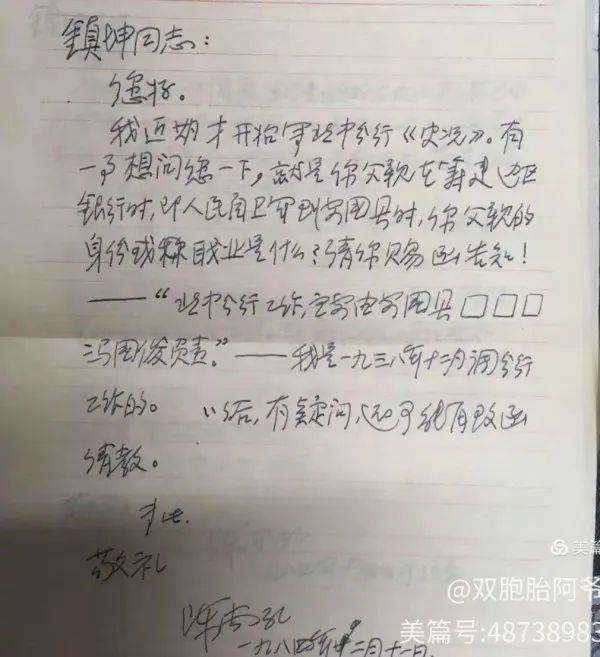 镇坤同志：
您好。
我近期才开始写冀中分行《史况》。有
一事想问您一下，就是你父亲在筹建边区
银行时，即人民自卫军到安国县时，你父亲的
身份或称职业是什么？请你赐函告知！
——“冀中分行工作，主要由安国县□□□
冯国俊负责。”——我是一九三八年十二月调分行
工作的。 以后，有疑问，还可能再致函
请教。
才此.
敬礼
陈尚礼
一九八四年 二月十二日.
美篇
@双胞胎阿爷
美篇号:48738983